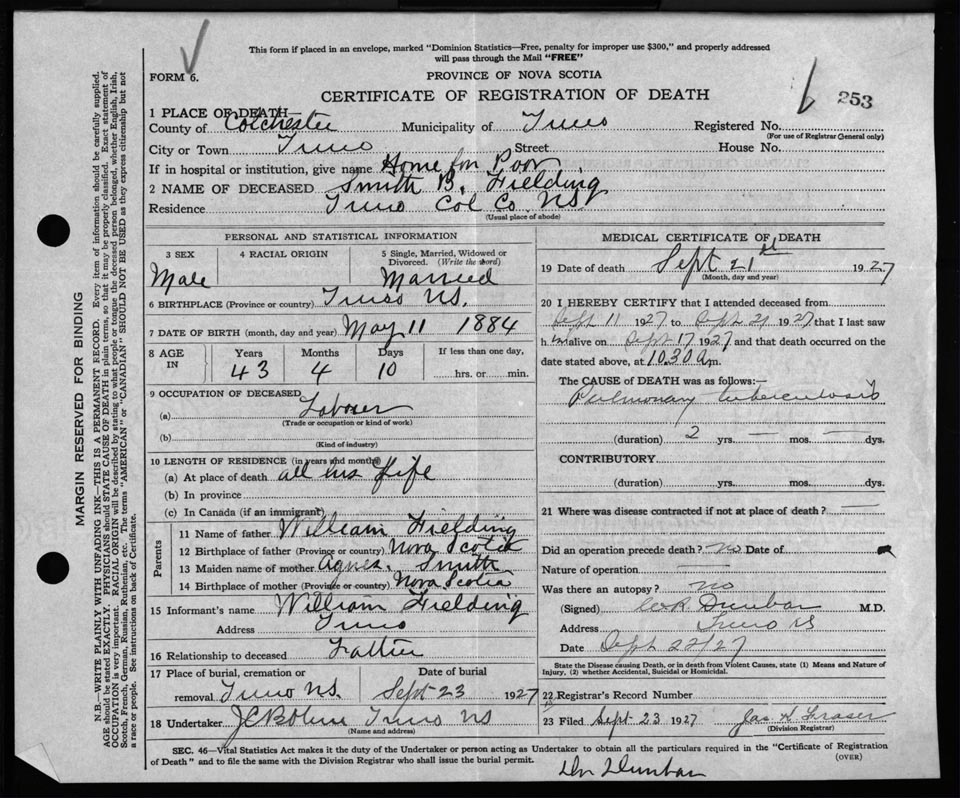 This form if placed in an envelope, marked "Dominion Statistics—Free, penalty for improper use $300," and properly addressed
will pass through the Mail "FREE"
FORM 6.
PROVINCE OF NOVA SCOTIA
CERTIFICATE OF REGISTRATION OF DEATH
6 253
1 PLACE OF DEATH—
County of Colchester Municipality of Truro Registered No.
(For use of Registrar General only)
City or Town Truro Street House No.
If in hospital or institution, give name Home for Poor
2 NAME OF DECEASED Smith B. Fielding
Residence Truro Col Co. NS
(Usual place of abode)
PERSONAL AND STATISTICAL INFORMATION
3 SEX 4 RACIAL ORIGIN 5 Single, Married, Widowed or
Divorced. (Write the word)
Male Married
6 BIRTHPLACE (Province or country) Truro NS.
7 DATE OF BIRTH (month, day and year) May 11 1884
8 AGE IN Years Months Days If less than one day,
43 4 10 hrs. or min.
9 OCCUPATION OF DECEASED
(a) Laborer
(Trade or occupation or kind of work)
(b)
(Kind of industry)
10 LENGTH OF RESIDENCE (in years and months)
(a) At place of death all his life
(b) In province
(c) In Canada (if an immigrant)
Parents
11 Name of father William Fielding
12 Birthplace of father (Province or country) Nova Scotia
13 Maiden name of mother Agnes. Smith
14 Birthplace of mother (Province or country) Nova Scotia
15 Informant's name William Fielding
Address Truro
16 Relationship to deceased Father
17 Place of burial, cremation or Date of burial
removal Truro NS. Sept 23 1927
18 Undertaker Truro NS
(Name and address)
MEDICAL CERTIFICATE OF DEATH
19 Date of death Sept 21st 1927
(Month, day and year)
20 I HEREBY CERTIFY that I attended deceased from
Sept 11 1927 to Sept 21 1927 that I last saw
him alive on Sept 17 1927 and that death occurred on the
date stated above, at 10.30 a.m.
The CAUSE OF DEATH was as follows:—
Pulmonary tuberculosis
(duration) 2 yrs. — mos. — dys.
CONTRIBUTORY
(duration) yrs. mos. dys.
21 Where was disease contracted if not at place of death? —
Did an operation precede death? no Date of
Nature of operation —
Was there an autopsy? no
(Signed) Dunbar M.D.
Address Truro NS
Date Sept 22/27
State the Disease causing Death, or in death from Violent Causes, state (1) Means and Nature of
Injury, (2) whether Accidental, Suicidal or Homicidal.
22 Registrar's Record Number
23 Filed Sept 23 1927 Jas H Fraser
(Division Registrar)
SEC. 46—Vital Statistics Act makes it the duty of the Undertaker or person acting as Undertaker to obtain all the particulars required in the "Certificate of Registration
of Death" and to file the same with the Division Registrar who shall issue the burial permit.
(OVER)
Dr Dunbar
MARGIN RESERVED FOR BINDING
N.B.—WRITE PLAINLY WITH UNFADING INK—THIS IS A PERMANENT RECORD. Every item of information should be carefully supplied.
AGE should be stated EXACTLY. PHYSICIANS should STATE CAUSE OF DEATH in plain terms, so that it may be properly classified. Exact statement of
OCCUPATION is very important. RACIAL ORIGIN will be described by stating to what people or tongue the deceased person belonged, whether English, Irish,
Scotch, French, German, Russian, Ruthenian, etc. The terms "AMERICAN" or "CANADIAN" SHOULD NOT BE USED as they express citizenship but not
a race or people. See instructions on back of Certificate.